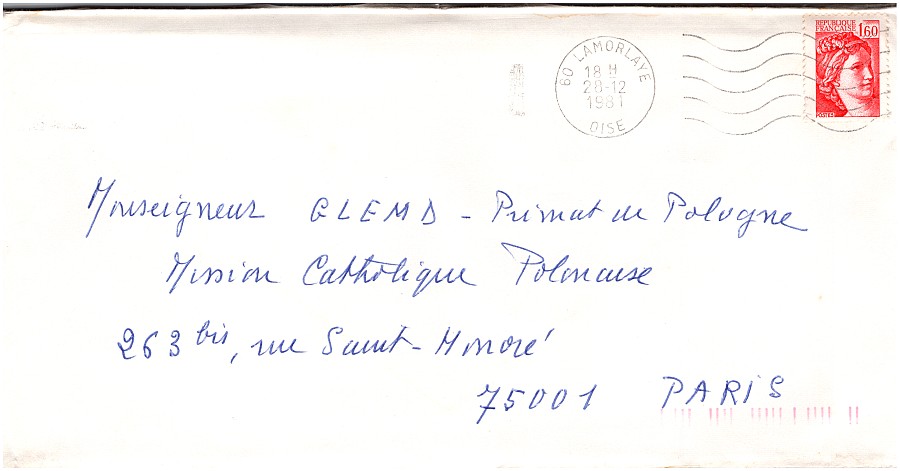 REPUBLIQUE
FRANÇAISE 1,60
POSTES
60 LAMORLAYE
18 H
28-12
1981
OISE
Monseigneur GLEMD - Primat de Pologne
Mission Catholique Polonaise
263 bis, rue Saint-Honoré
75001 PARIS